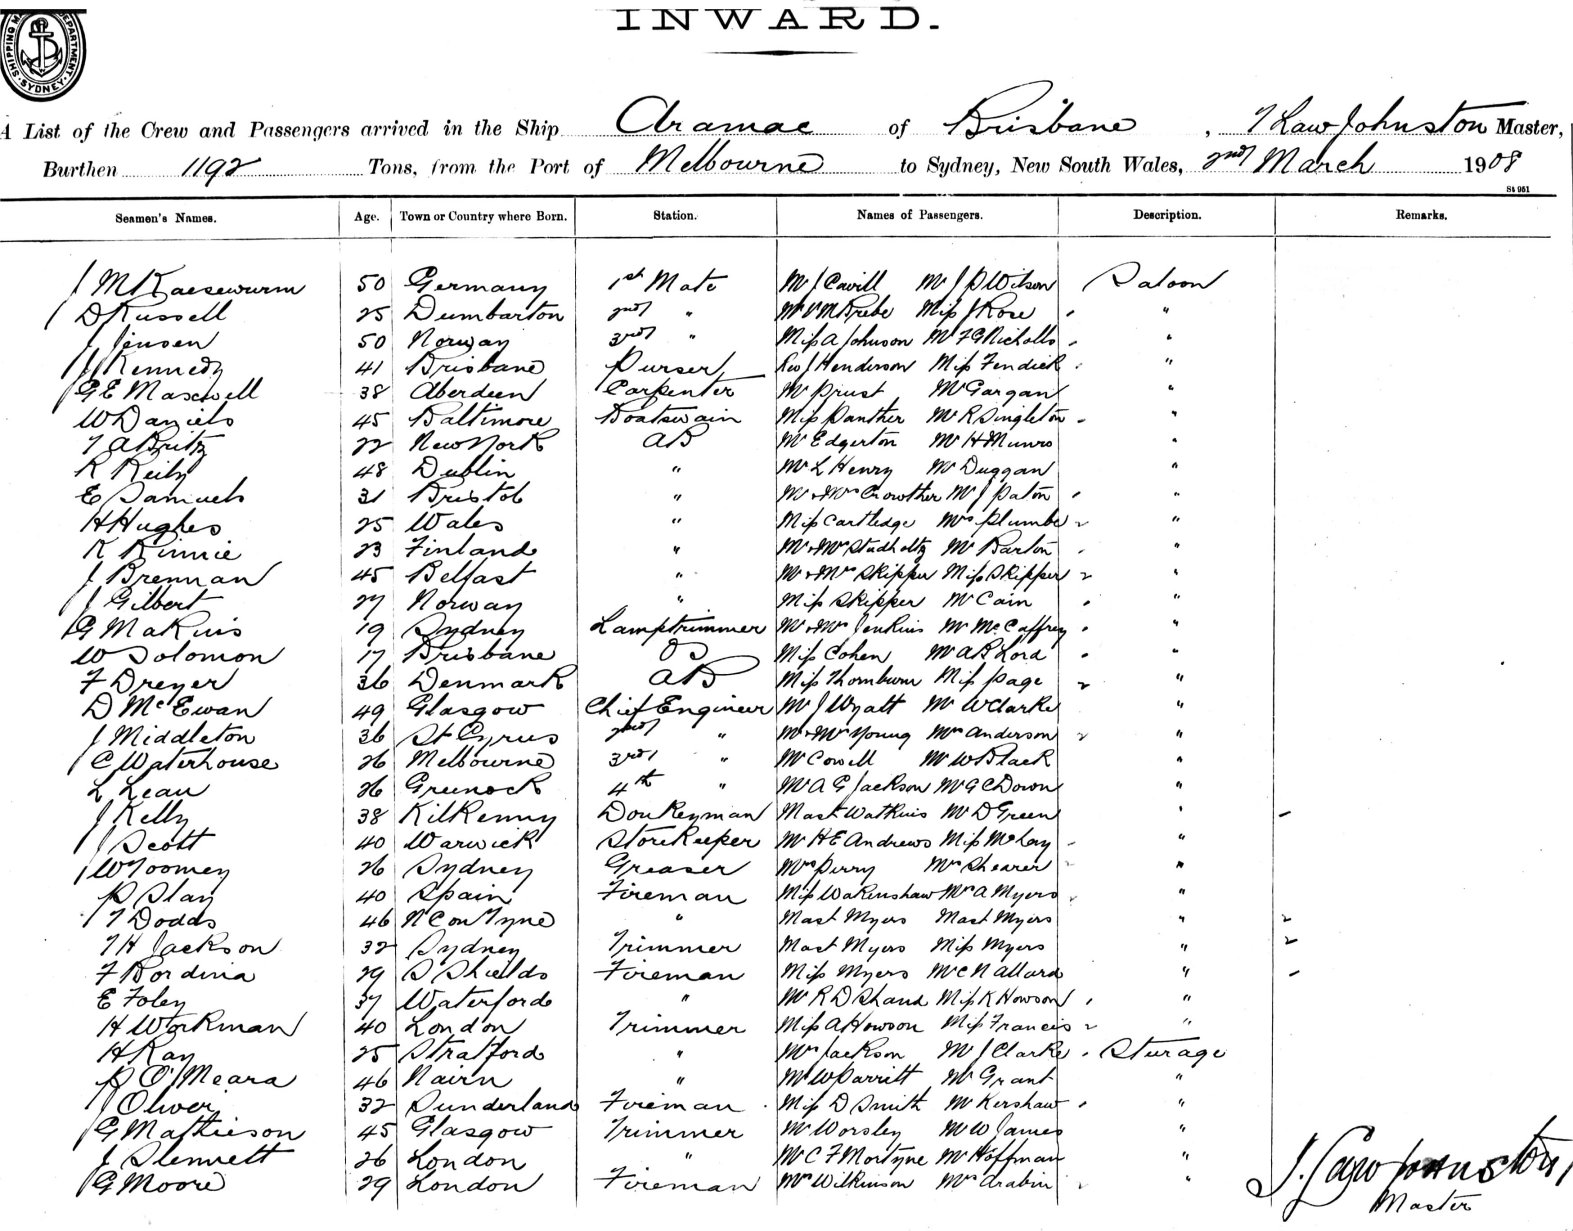 INWARD.
SHIPPING DEPARTMENT SYDNEY
A List of the Crew and Passengers arrived in the Ship Aramac of Brisbane, T Law Johnston Master,
Burthen 1192 Tons, from the Port of Melbourne to Sydney, New South Wales, 2nd March 1908
St 961
Seamen's Names. Age. Town or Country where Born. Station. Names of Passengers. Description. Remarks.
J M Kaesewurm 50 Germany 1st Mate Mr J Cavill Mr J P Wilson Saloon
D Russell 25 Dumbarton 2nd " Miss J Rose "
J Jensen 50 Norway 3rd " Miss A Johnson Mr F G Nicholls "
J Kennedy 41 Brisbane Purser Rev J Henderson Miss Fendick "
G E Maxwell 38 Aberdeen Carpenter Mr Prust Mr Gargan "
W Daniels 45 Baltimore Boatswain Miss Panther Mr R Singleton "
T A Britz 22 New York AB Mr Edgerton Mr H Munro "
R Reily 48 Dublin " Mr L Henry Mr Duggan "
E Samuels 31 Bristol " Mr & Mrs Crowther Mr J Paton "
H Hughes 25 Wales " Miss Cartledge Mrs Plumbe "
K Kinnie 23 Finland " Mr & Mrs Studholtz Mr Barton "
J Brennan 45 Belfast " Mr & Mrs Skipper Miss Skipper "
J Gilbert 27 Norway " Miss Skipper Mr Cain "
G Makuis 19 Sydney Lamptrimmer Mr & Mrs Jenkins Mr McCaffrey "
W Solomon 17 Brisbane OS Miss Cohen Mr A B Lord "
F Dreyer 36 Denmark AB Miss Thornburn Miss Page "
D McEwan 49 Glasgow Chief Engineer Mr J Wyatt Mr W Clarke "
J Middleton 36 St Cyrus 2nd " Mr & Mrs Young Mrs Anderson "
C Waterhouse 26 Melbourne 3rd " Mr Cowell Mr W Black "
L Leau 26 Greenock 4th " Mr A G Jackson Mr G C Down "
J Kelly 38 Kilkenny Donkeyman Mast Watkins Mr D Green "
J Scott 40 Warwick Storekeeper Mr H E Andrews Miss McLay "
W Toomey 26 Sydney Greaser Mrs Perry Mrs Shearer "
P Slay 40 Spain Fireman Miss Wakenshaw Mrs A Myers "
T Dodds 46 N C on Tyne " Mast Myers Mast Myers " 2
T H Jackson 32 Sydney Trimmer Mast Myers Miss Myers " 2
F Bordina 29 S Shields Fireman Miss Myers Mr C N Allard "
E Foley 37 Waterford " Mr R D Shand Miss K Howson "
H Workman 40 London Trimmer Miss A Howson Miss Francis "
H Ray 25 Stratford " Mrs Jackson Mr J Clarke Sturage
P O'Meara 46 Nairn " Mr W Parritt Mr Grant "
J Oliver 32 Sunderland Fireman Miss D Smith Mr Kershaw "
G Mathieson 45 Glasgow Trimmer Mr Worsley Mr W James "
J Slennett 26 London " Mr C F Mortyne Mr Hoffman "
G Moore 29 London Fireman Mrs Wilkinson Mrs Arabin "
T. Law Johnston
Master